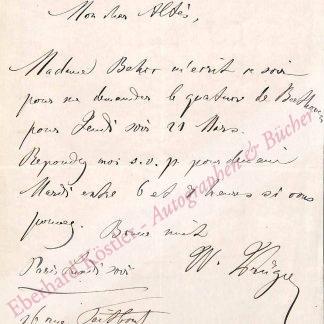 Mon cher Altès,
Madame Beker m'écrit ce soir
pour me demander le quatuor de Beethoven
pour Jeudi soir 21 Mars.
Repondez moi s.v.p. pour demain
Mardi entre 6 et 8 heures si vous
pouvez. Bonne nuit
W. Krüger
Paris Lundi soir
26 rue Taitbout
Eberhard Köstler Autographen & Bücher